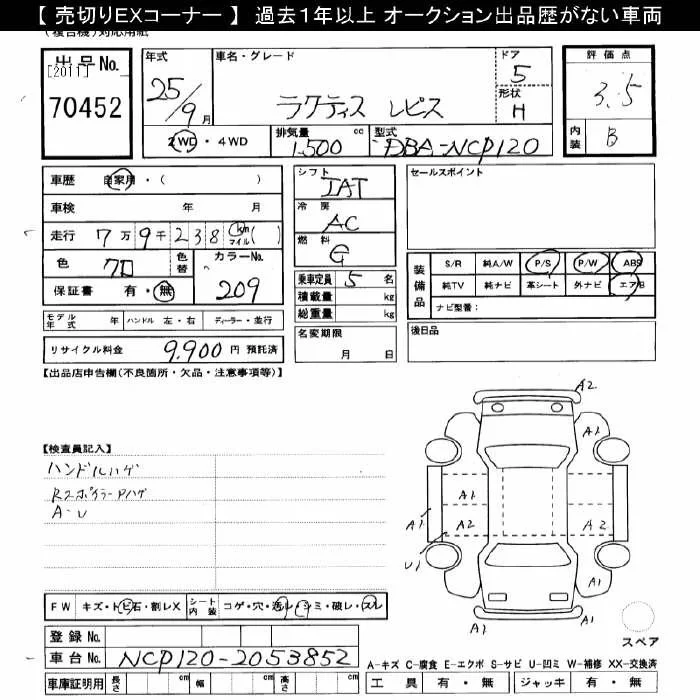 【 売切りEXコーナー 】 過去１年以上 オークション出品歴がない車両
(複合機)対応用紙
出品No.
[2011]
70452
年式
25/9月
車名・グレード
ラクティス レピス
ドア
5
形状
H
2WD・4WD
排気量
1,500 cc
型式
DBA-NCP120
評価点
3.5
内装
B
車歴 自家用・( )
車検 年 月
走行 7万9千238 km マイル ( )
色 クロ
色替
カラーNo.
209
保証書 有・無
モデル年式 年 ハンドル 左・右 ディーラー・並行
リサイクル料金 9,900円 預託済
シフト
IAT
冷房
AC
燃料
G
乗車定員 5 名
積載量 kg
総重量 kg
名変期限
月 日
セールスポイント
装備品
S/R 純A/W P/S P/W ABS
純TV 純ナビ 革シート 外ナビ エアB
ナビ型番：
後日品
【出品店申告欄(不良箇所・欠品・注意事項等)】
【検査員記入】
ハンドルハゲ
RスポイラーPハゲ
A-U
A2
A1
A1
A1
A1
A2
A2
U1
A1
A1
A1
A1
スペア
FW キズ・トビ石・割レX
シート内装 コゲ・穴・返レ・シミ・破レ・スレ
登録No.
車台No. NCP120-2053852
車庫証明用 長さ cm 幅 cm 高さ cm
A-キズ C-腐食 E-エクボ S-サビ U-凹ミ W-補修 XX-交換済
工具 有・無 ジャッキ 有・無